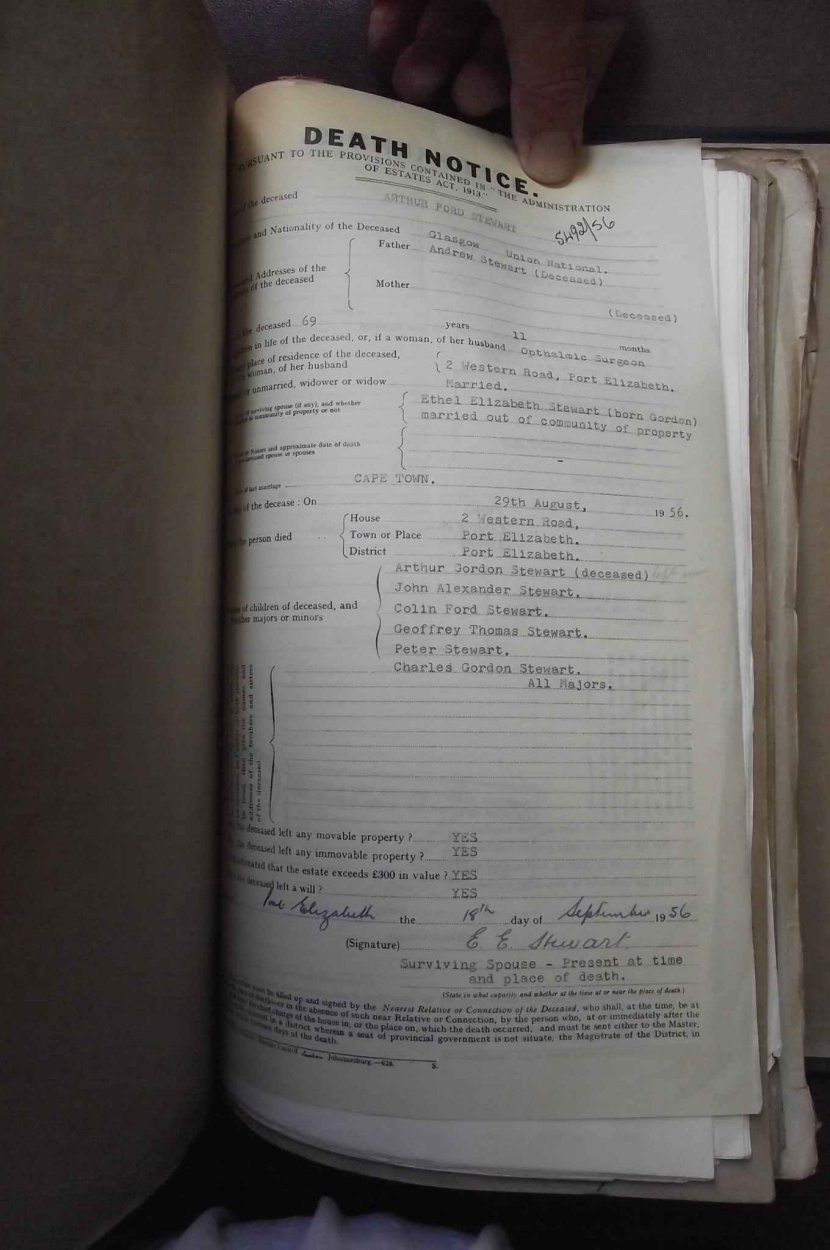 DEATH NOTICE.
PURSUANT TO THE PROVISIONS CONTAINED IN "THE ADMINISTRATION
OF ESTATES ACT, 1913."
of the deceased ARTHUR FORD STEWART
5492/56
and Nationality of the Deceased Glasgow Union National.
and Addresses of the
of the deceased
Father Andrew Stewart (Deceased)
Mother
(Deceased)
the deceased 69 years 11 months
in life of the deceased, or, if a woman, of her husband Opthalmic Surgeon
place of residence of the deceased,
woman, of her husband
2 Western Road, Port Elizabeth.
or unmarried, widower or widow Married.
of surviving spouse (if any), and whether
in community of property or not
Ethel Elizabeth Stewart (born Gordon)
married out of community of property
Names and approximate date of death
spouse or spouses
–
of last marriage CAPE TOWN.
of the decease : On 29th August, 1956.
the person died
House 2 Western Road,
Town or Place Port Elizabeth.
District Port Elizabeth.
of children of deceased, and
whether majors or minors
Arthur Gordon Stewart (deceased)
John Alexander Stewart.
Colin Ford Stewart.
Geoffrey Thomas Stewart.
Peter Stewart.
Charles Gordon Stewart.
All Majors.
addresses of the brothers and sisters
of the deceased.
the deceased left any movable property ? YES
the deceased left any immovable property ? YES
estimated that the estate exceeds £300 in value ? YES
the deceased left a will ? YES
Port Elizabeth the 18th day of September 1956
(Signature) E E Stewart
Surviving Spouse - Present at time
and place of death.
(State in what capacity and whether at the time at or near the place of death.)
must be filled up and signed by the Nearest Relative or Connection of the Deceased, who shall, at the time, be at
or in the absence of such near Relative or Connection, by the person who, at or immediately after the
charge of the house in, or the place on, which the death occurred, and must be sent either to the Master,
in a district wherein a seat of provincial government is not situate, the Magistrate of the District, in
days of the death.
Johannesburg.—628. S.